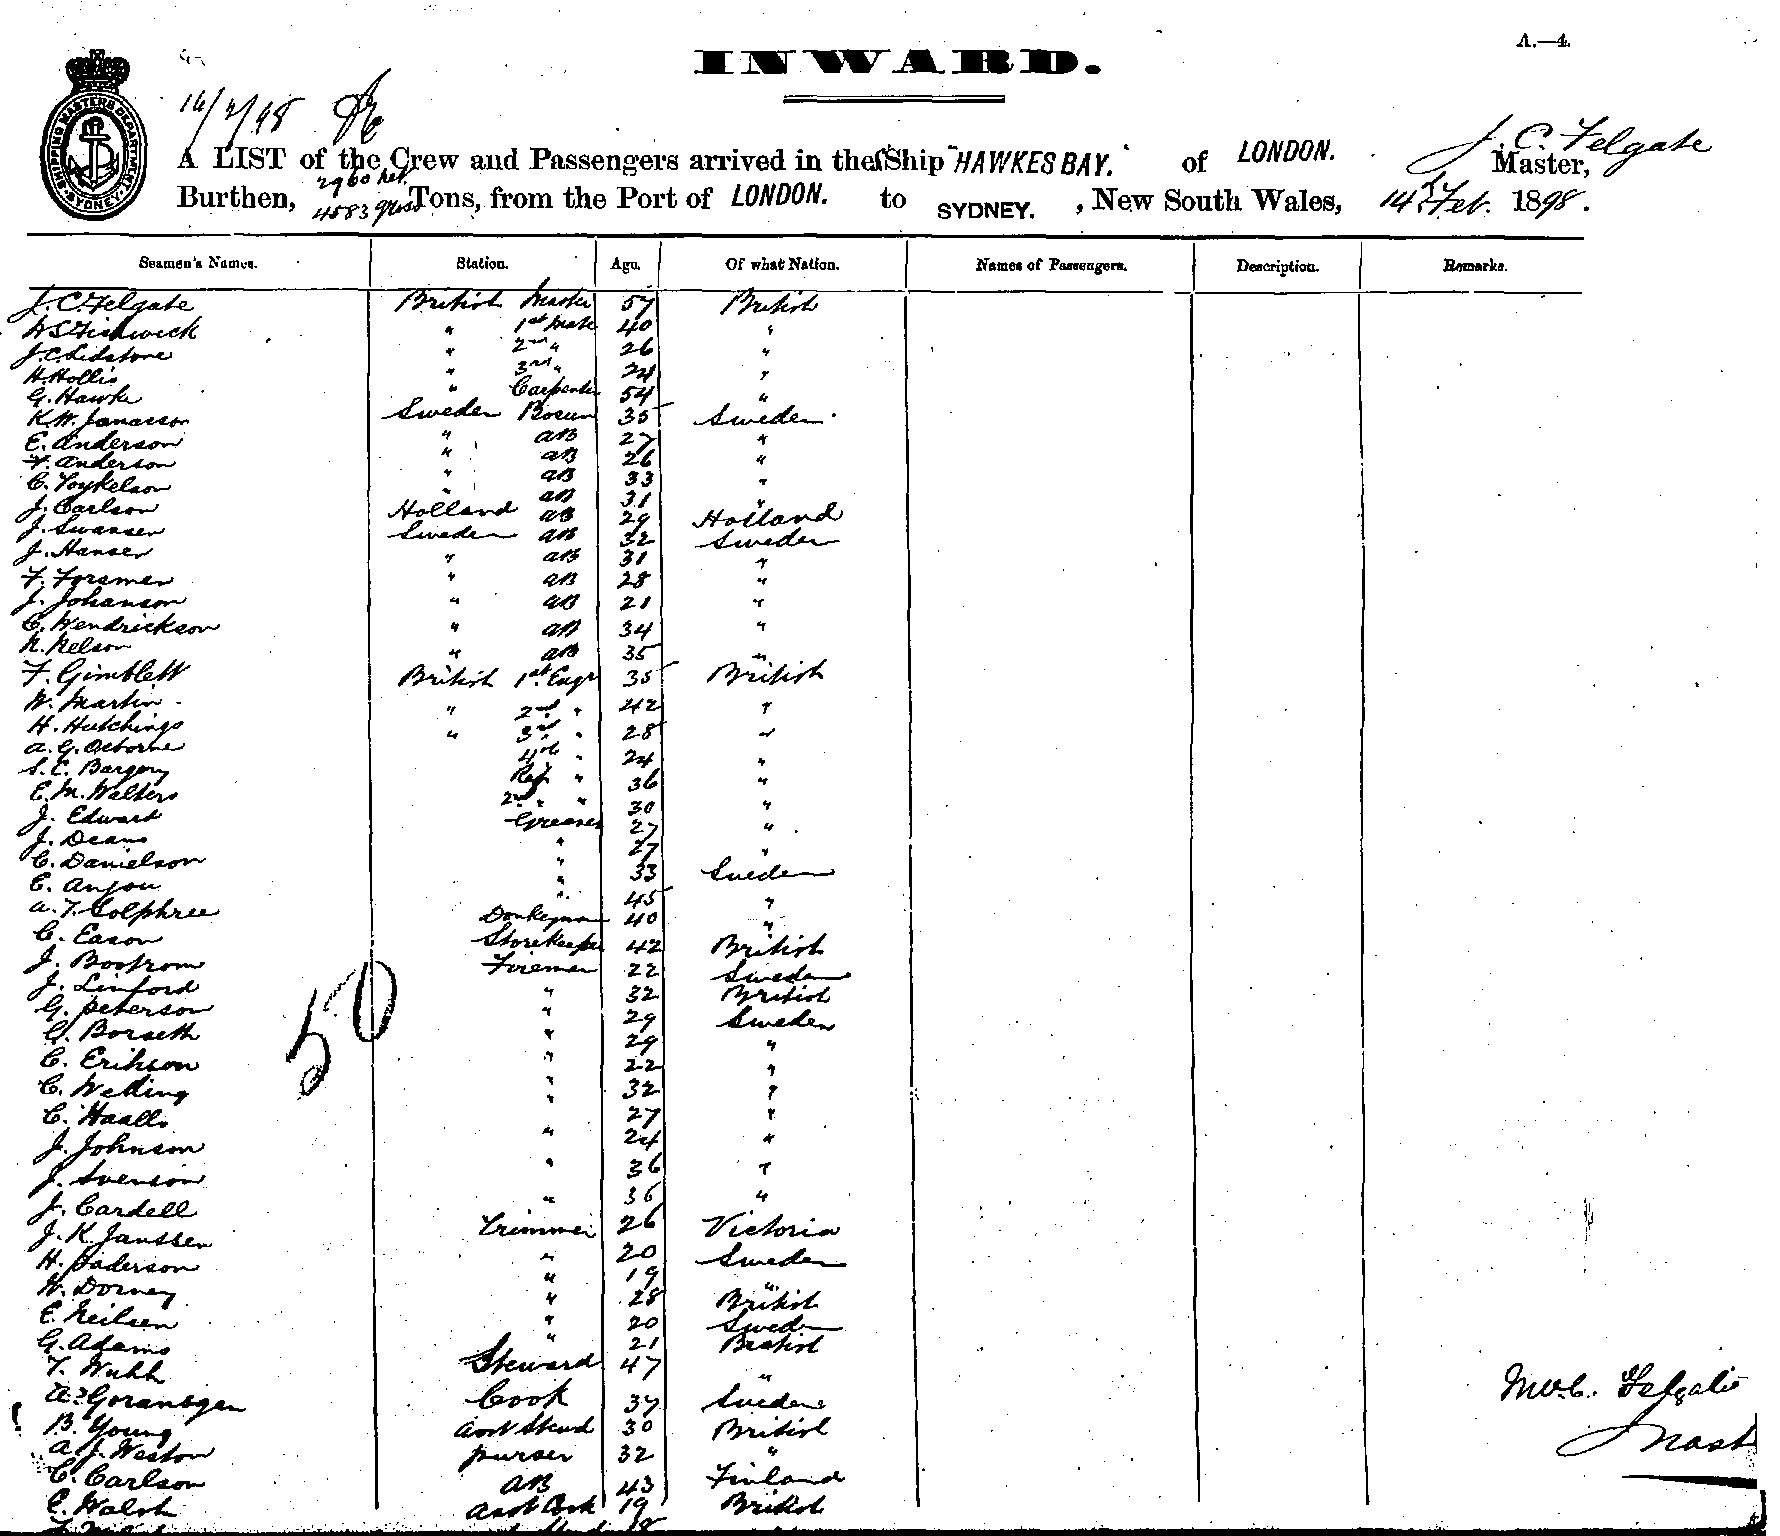 A.—4.
INWARD.
SHIPPING MASTERS DEPARTMENT SYDNEY.
14/2/98
A LIST of the Crew and Passengers arrived in the SShip "HAWKES BAY." of LONDON. J. C. Felgate Master,
Burthen, 2960 net 4583 gross Tons, from the Port of LONDON. to SYDNEY. , New South Wales, 14th Feb. 1898.
Seamen's Names. Station. Age. Of what Nation. Names of Passengers. Description. Remarks.
J. C. Felgate British Master 57 British
W S Fishwick " 1st Mate 40 "
J. C. Lidstone " 2nd " 26 "
H. Hollis " 3rd " 24 "
G. Hawke " Carpenter 54 "
K. W. Janasson Sweden Bosun 35 Sweden
E. Anderson " AB 27 "
F. Anderson " AB 26 "
C. Toykelson " AB 33 "
J. Carlson " AB 31 "
J. Swansen Holland AB 29 Holland
J. Hansen Sweden AB 32 Sweden
F. Forsmen " AB 31 "
J. Johanson " AB 28 "
C. Hendrickson " AB 21 "
N. Nelson " AB 34 "
" AB 35 "
F. Gimblett British 1st Engr 35 British
W. Martin " 2nd " 42 "
H. Hutchings " 3rd " 28 "
A. G. Osborne 4th " 24 "
S. C. Bargery Ref " 36 "
E. M. Walters 2nd " " 30 "
J. Edwart Greaser 27 "
J. Deans " 27 "
C. Danielson " 33 Sweden
C. Anjou " 45 "
A. F. Golphree Donkeyman 40 "
C. Eason Storekeeper 42 British
J. Bostrom Firemen 22 Sweden
J. Linford " 32 British
G. Peterson " 29 Sweden
G. Borseth " 29 "
C. Erikson " 22 "
C. Welling " 32 "
C. Haalls 27 "
J. Johnson " 24 "
J. Svenson " 36 "
J. Cardell " 36 "
J. K. Janssen Trimmer 26 Victoria
H. Paderson " 20 Sweden
W. Dorney " 19 "
E. Neilsen " 28 British
G. Adams " 20 Sweden
" 21 British
T. Webb Steward 47 "
A. Goransgen Cook 37 Sweden
B. Young Asst Stewd 30 British
A. J. Weston Purser 32 "
C. Carlson AB 43 Finland
E. Walsh Asst Cook 19 British
18
50
Felgate
Mast